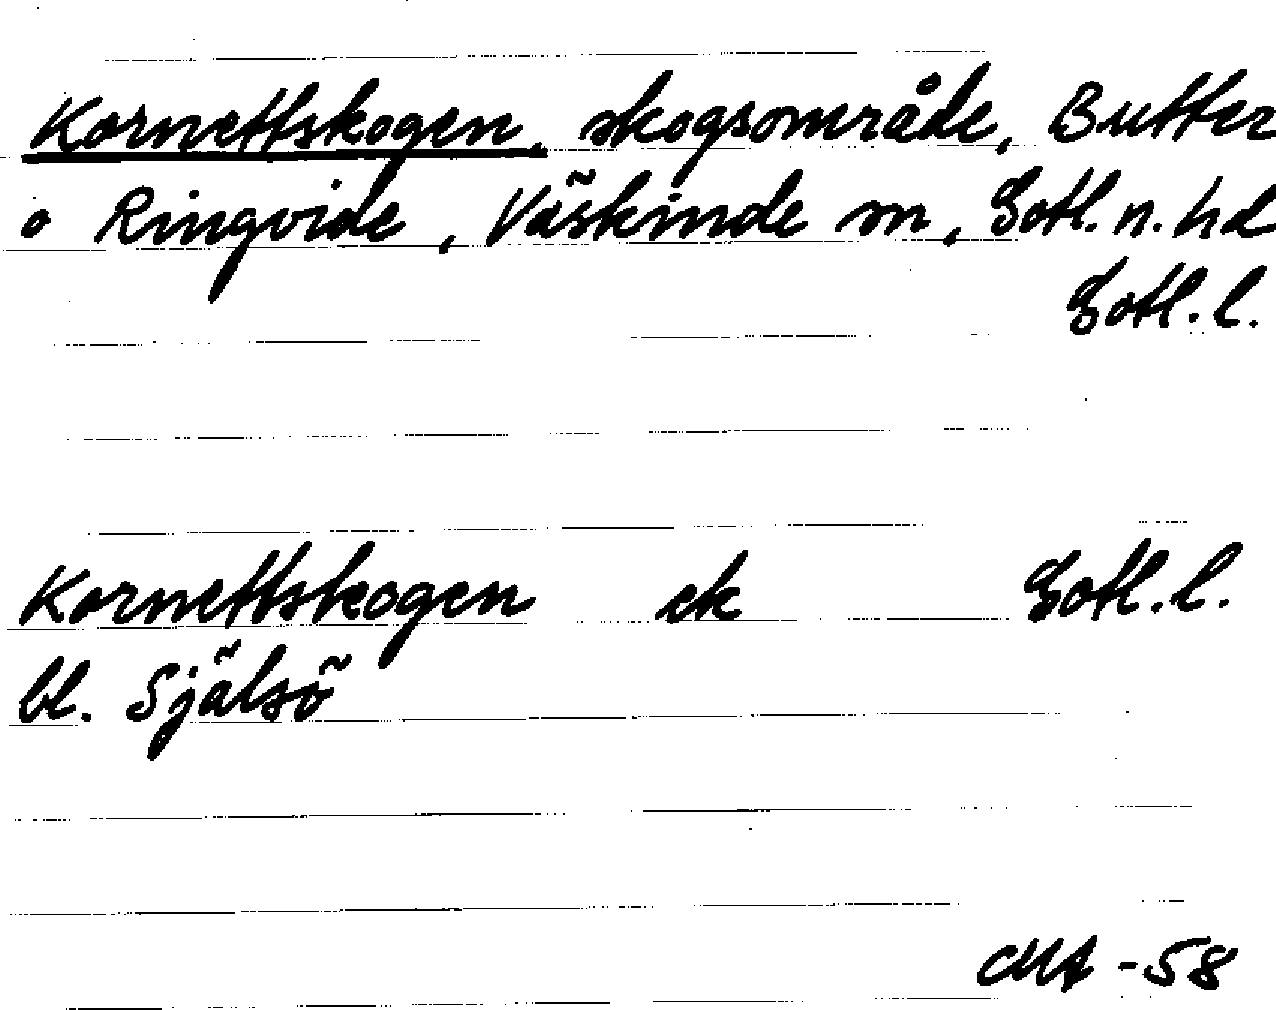 Kornettskogen, skogsområde, Butter
o Ringvide, Väskinde sn, Gotl. n. hd
Gotl. l.
Kornettskogen ek Gotl. l.
bl. Själsö
-58